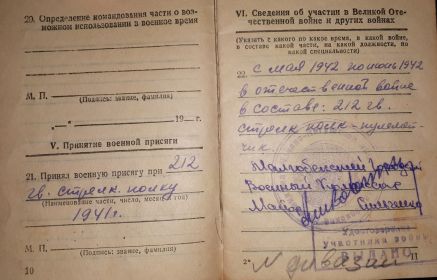 20. Определение командования части о воз-
можном использовании в военное время
М. П.
(Подпись: звание, фамилия)
„ “ 19 г.
V. Принятие военной присяги
21. Принял военную присягу при 212
гв. стрелк. полку
(Наименование части, число, месяц, год)
1941г.
М. П.
(Подпись: звание, фамилия)
10
VI. Сведения об участии в Великой Оте-
чественной войне и других войнах
(Указать с какого по какое время, в какой войне,
в составе какой части, на какой должности, по
какой специальности)
22. с мая 1942 по июнь 1942
в отечественной войне
в составе: 212 гв.
стрелк полк - пулемет-
чик
Военный Комиссар
Майор
Удостоверение
Участника войны
ВЫДАНО
2* 11